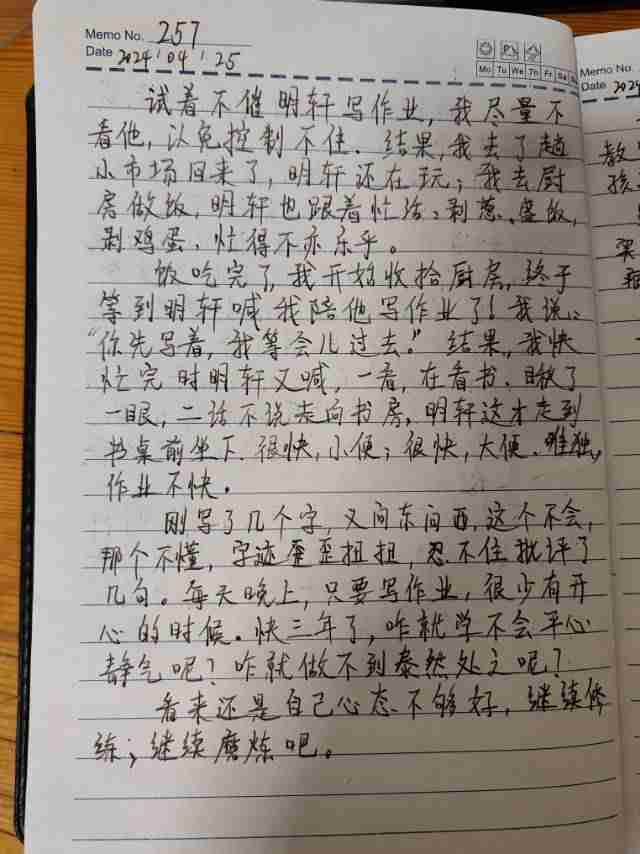 Memo No. 257
Date 2024 / 04 / 25
Mo Tu We Th Fr Sa
试着不催明轩写作业，我尽量不
看他，以免控制不住．结果，我去了趟
小市场回来了，明轩还在玩；我去厨
房做饭，明轩也跟着忙活：剥葱、盛饭，
剥鸡蛋．忙得不亦乐乎。
饭吃完了，我开始收拾厨房，终于
等到明轩喊我陪他写作业了！我说：
“你先写着，我等会儿过去．”结果，我快
忙完时明轩又喊，一看，在看书．瞅了
一眼，二话不说走向书房，明轩这才走到
书桌前坐下．很快，小便；很快，大便．唯独，
作业不快．
刚写了几个字，又问东问西，这个不会，
那个不懂，字迹歪歪扭扭，忍不住批评了
几句。每天晚上，只要写作业，很少有开
心的时候．快三年了，咋就学不会平心
静气呢？咋就做不到泰然处之呢？
看来还是自己心态不够好，继续修
练；继续磨炼吧。
Memo No.
Date 202
教
孩